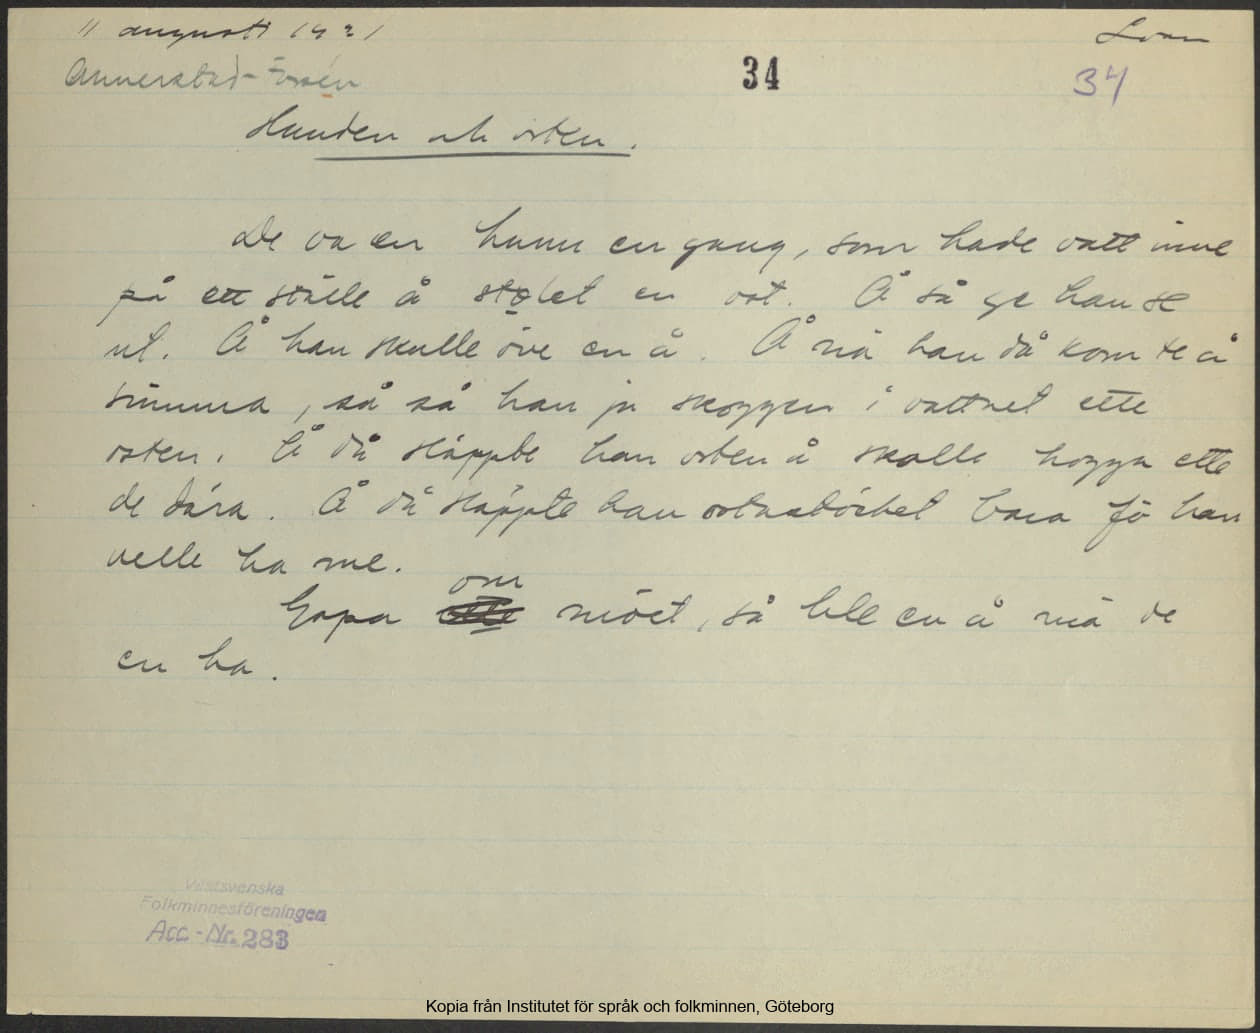 11 augusti 1921
34
34
Hunden och osten.
De va en hunn en gang, som hade vatt inne
på ett ställe å stolet en ost. Å så ge han se
ut. Å han skulle öve en å. Å nä han då kom te å
simma, så så han ju skoggen i vattnet ette
osten. Å då släppte han osten å skolle hogga ette
de dära. Å då släppte han oststöcket bara fö han
velle ha me.
Gapa om möet, så ble en å mä de
en ha.
Västsvenska
Folkminnesföreningen
Acc-Nr. 283
Kopia från Institutet för språk och folkminnen, Göteborg